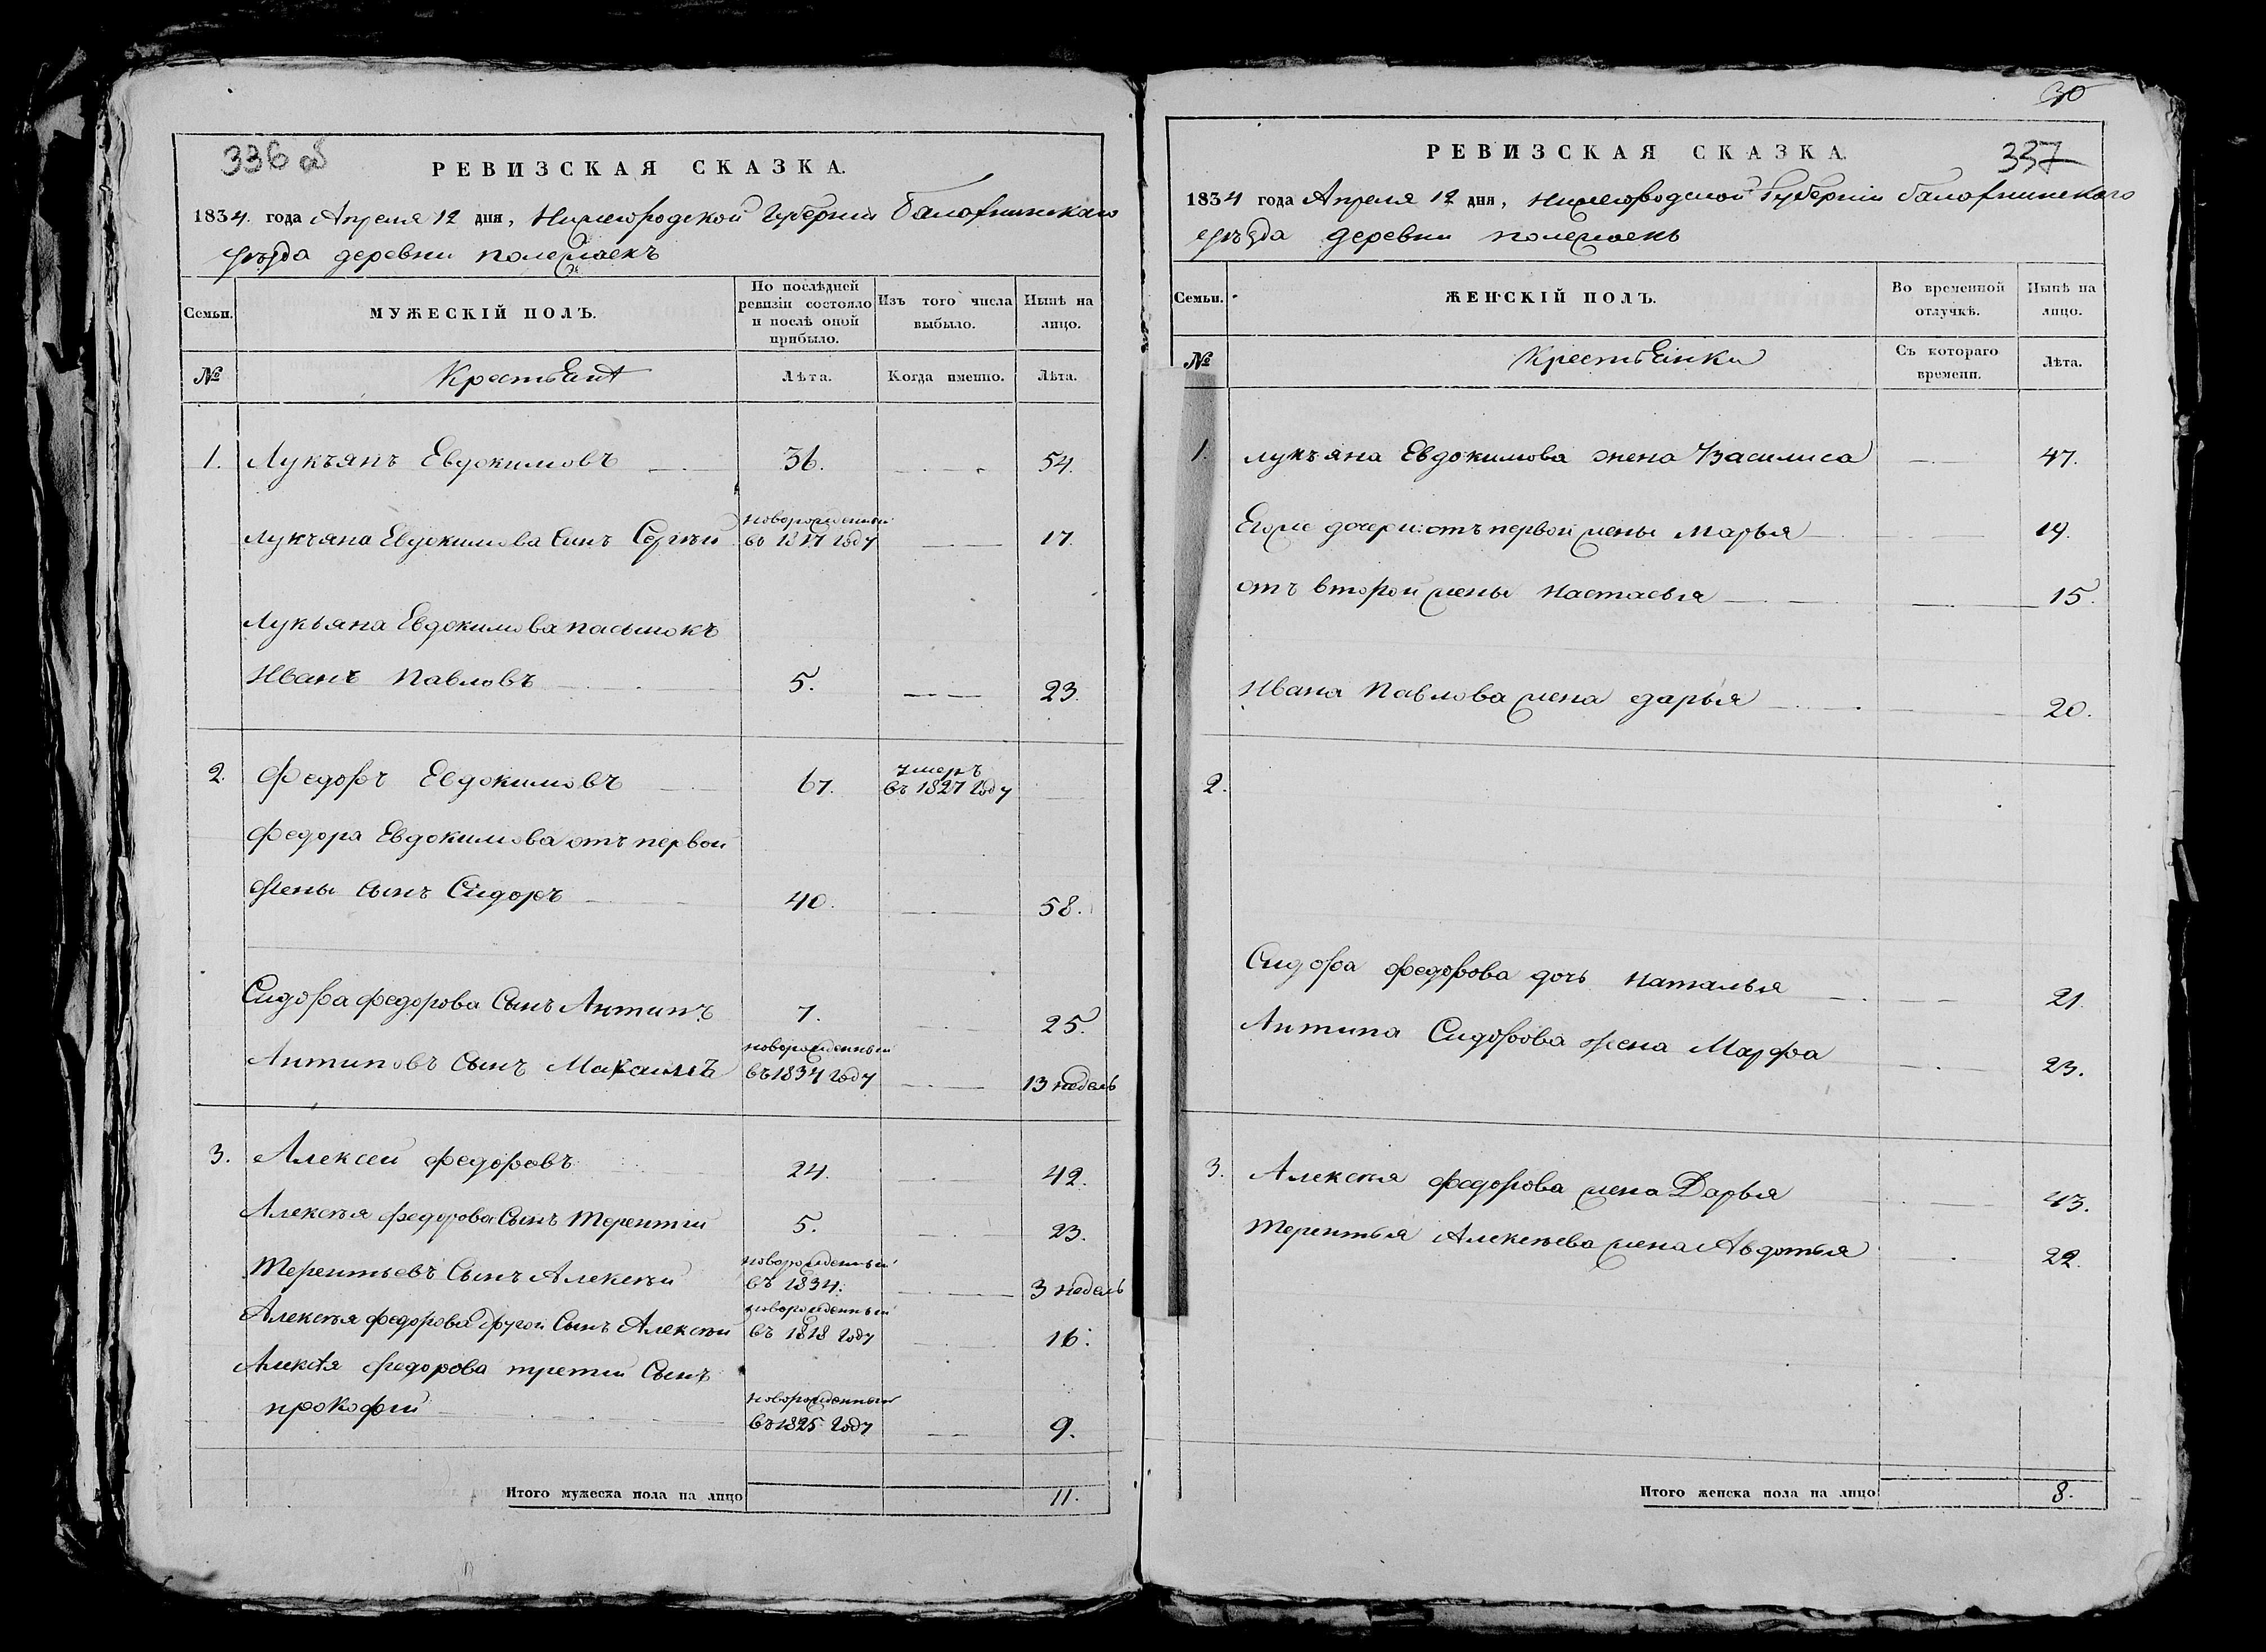 336 об
РЕВИЗСКАЯ СКАЗКА.
1834. года Апреля 12 дня, Нижегородской Губернии Балохнинскаго
уезда деревни
Семьи.
МУЖЕСКІЙ ПОЛЪ.
По послѣдней ревизіи состояло и послѣ оной прибыло.
Изъ того числа выбыло.
Нынѣ на лицо.
№
Крестьянъ
Лѣта.
Когда именно.
Лѣта.
1. Лукъянъ Евдокимовъ 36. 54.
новорожденный
Лукъяна Евдокимова Сынъ Сергѣй въ 1817 году 17.
Лукьяна Евдокимова пасынокъ
Иванъ Павловъ 5. 23.
умеръ
2. Федоръ Евдокимовъ 67. въ 1827 году
Федора Евдокимова отъ первой
жены сынъ Сидоръ 40. 58.
Сидора Федорова Сынъ Антипъ 7. 25.
новорожденный
Антиповъ Сынъ Максимъ въ 1834 году 13 недель
3. Алексей Федоровъ 24. 42.
Алексѣя Федорова Сынъ Терентий 5. 23.
новорожденный
Терентьевъ Сынъ Алексѣй въ 1834. 3 недель
новорожденный
Алексѣя Федорова другой Сынъ Алексѣй въ 1818 году 16.
Алексѣя Федорова третий Сынъ
новорожденный
прокофий въ 1825 году 9.
Итого мужеска пола на лицо 11.
30
337
РЕВИЗСКАЯ СКАЗКА.
1834 года Апреля 12 дня, Нижегородской Губернии Балохнинского
уѣзда деревни
Семьи.
ЖЕНСКІЙ ПОЛЪ.
Во временной отлучкѣ.
Нынѣ на лицо.
№
Крестьянки
Съ котораго времени.
Лѣта.
1. Лукъяна Евдокимова жена Василиса 47.
Егоже дочери: отъ первой жены Марья 19.
отъ второй жены Настасья 15.
Ивана Павлова жена дарья 20.
2.
Сидора Федорова дочь Наталья 21.
Антипа Сидорова жена Марфа 23.
3. Алексѣя Федорова жена Дарья 43.
Терентья Алексѣева жена Авдотья 22.
Итого женска пола на лицо 8.